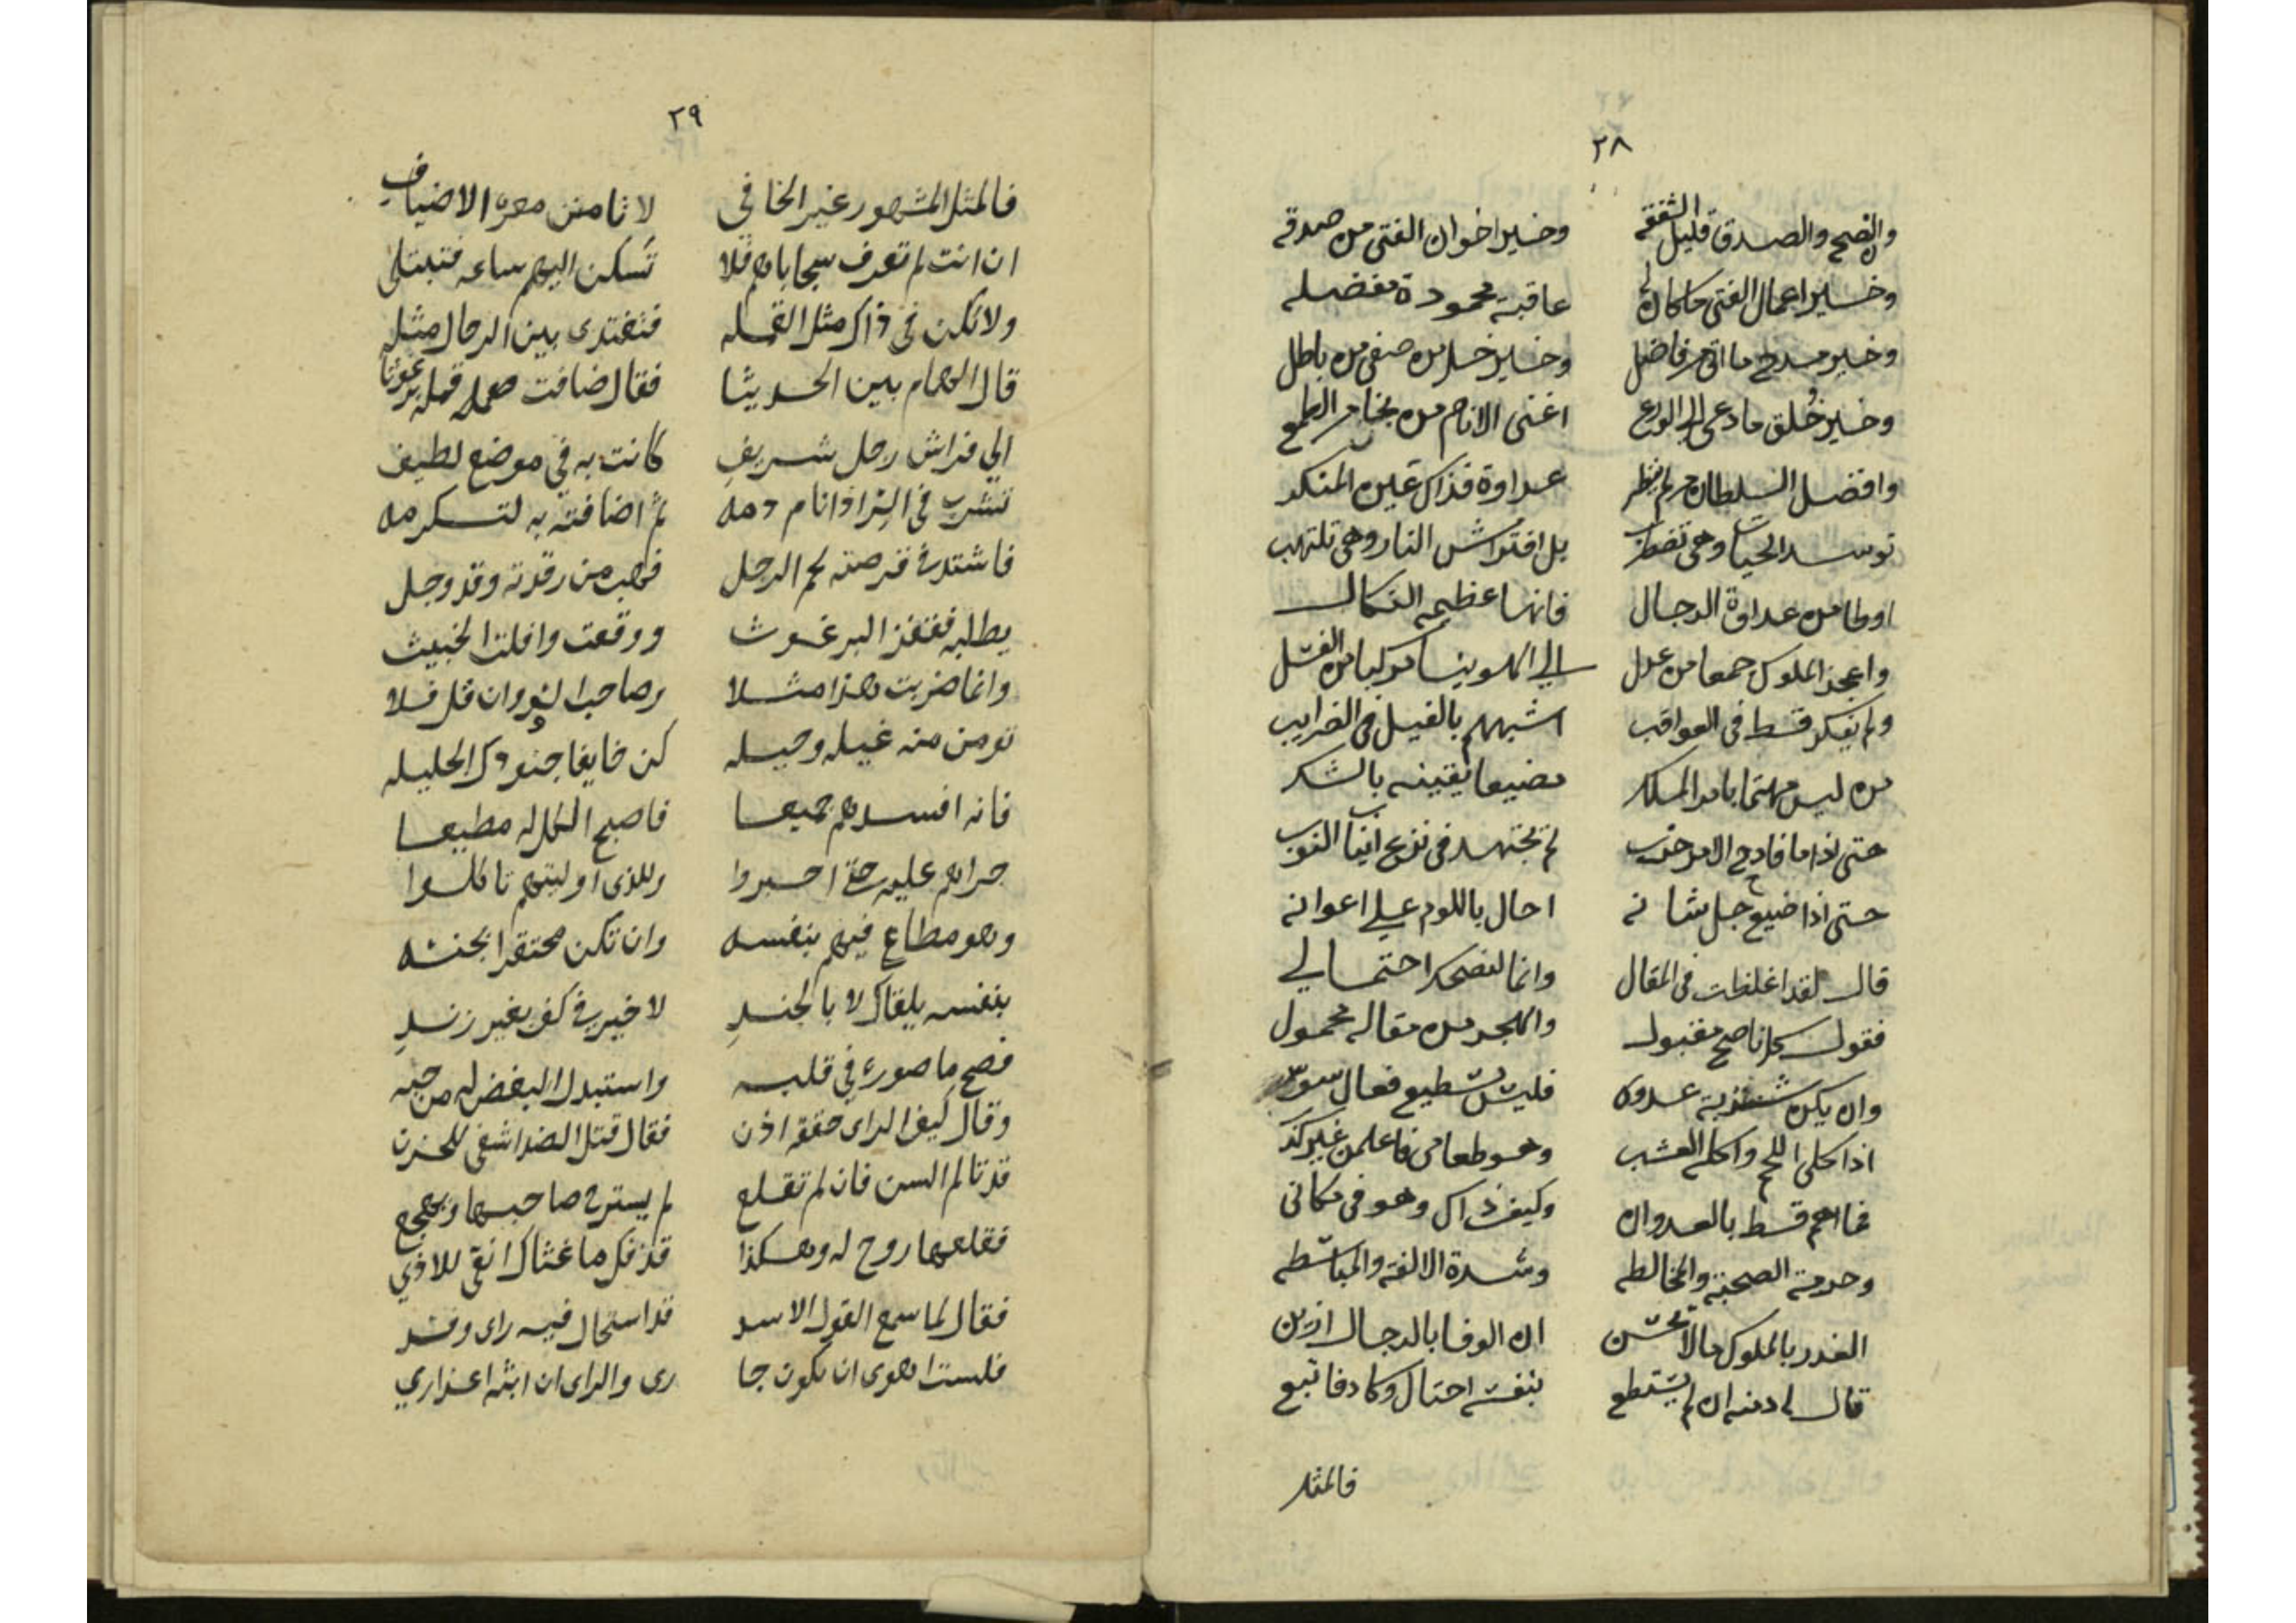 ٢٨
والنصح والصدق قليل الشفقه وخير اخوان الفتى من صدقه
وخير اعمال الفتى ما كان له عاقبة محمودة مفضله
وخير مدح ما اتى من فاضل وخير خل من صفى من باطل
وخير خُلق ما دعى الى الورع اغنى الانام من نجا من الطمع
وافضل السلطان من لم يبطر عداوة فذاك عين المنكر
توسد الحيات وهى تضطرب بل افتراش النار وهى تلتهب
اوطا من عداوة الرجال فانها عظيمه النكال
واعجز الملوك جمعا من عدل الى الهوينا مركبا من الفشل
ولم يفكر قط فى العواقب اشبههم بالفيل فى الضرايب
من ليس مهتما بامر الملك مضيعا يقينه بالشك
حتى اذا ما فادح الامر حزب لم يجتهد فى نزع انياب النوب
حتى اذا ضيع جل شانه احال باللوم على اعوانه
قال لقد اغلظت فى المقال وانما لنصحك احتمالي
فقول كل ناصح مقبول والهجر من مقاله محمول
وان يكن شتربة عدوه فليس يستطيع فعال سوه
اذ اكلى اللحم واكله العشب وهو طعامى فاعلمن غير كذب
فما اهم قط بالعدوان وكيف ذاك وهو فى مكانى
وحرمة الصحبة والمخالطه وشدة الالفة والمباسطه
الغدر بالملوك مالا يحسن ان الوفا بالرجال ازين
قال له دمنه ان لم يستطع بنفسه احتال وكادفاتبع
فالمثل
٢٩
فالمثل المشهور غير الخافي لا تامنن معرة الاضياف
ان انت لم تعرف سجاياهم فلا تسكن اليهم ساعه فتبتلى
ولا تكن فى ذاك مثل القمله فتغتدى بين الرجال مثله
قال الهمام بين الحديثا فقال ضافت قمله برغوثا
الى فراش رجل شريف كانت به في موضع لطيف
تشرب فى الليل اذا نام دمه ثم اضافته به لتكرمه
فاشتد فى قرصته لحم الرجل فهب من رقدته وقد وجل
يطلبه فقفز البرغوث ووقعت وافلت الخبيث
وانما ضربت هذا مثلا وصاحب الثور وان قل فلا
تومن منه غيله وحيله كن خايفا جنودك الجليله
فانه افسدهم جميعا فاصبح الكل له مطيعا
جراهم عليه حتى اجبروا وللذى اوليتهم تاكلوا
وهو مطاع فيهم بنفسه وان تكن محتقرا بجنسه
بنفسه يلقاك لا بالجندِ لا خير في كف بغير زندِ
فصح ما صوره في قلبه واستبدل البغض له من حبه
وقال كيف الراى حققه اذن فقال قتل الضد اشفى للحزن
قد تالم السن فان لم تقلع لم يسترح صاحبها ويهجع
فقلعها روح له وهكذا قذفك ما غثاك انقى للاذي
فقال لما سمع القول الاسد قد استحال فيه راى وفسد
فلست اهوى ان يكون جا رى والراى ان ابثه اعذاري